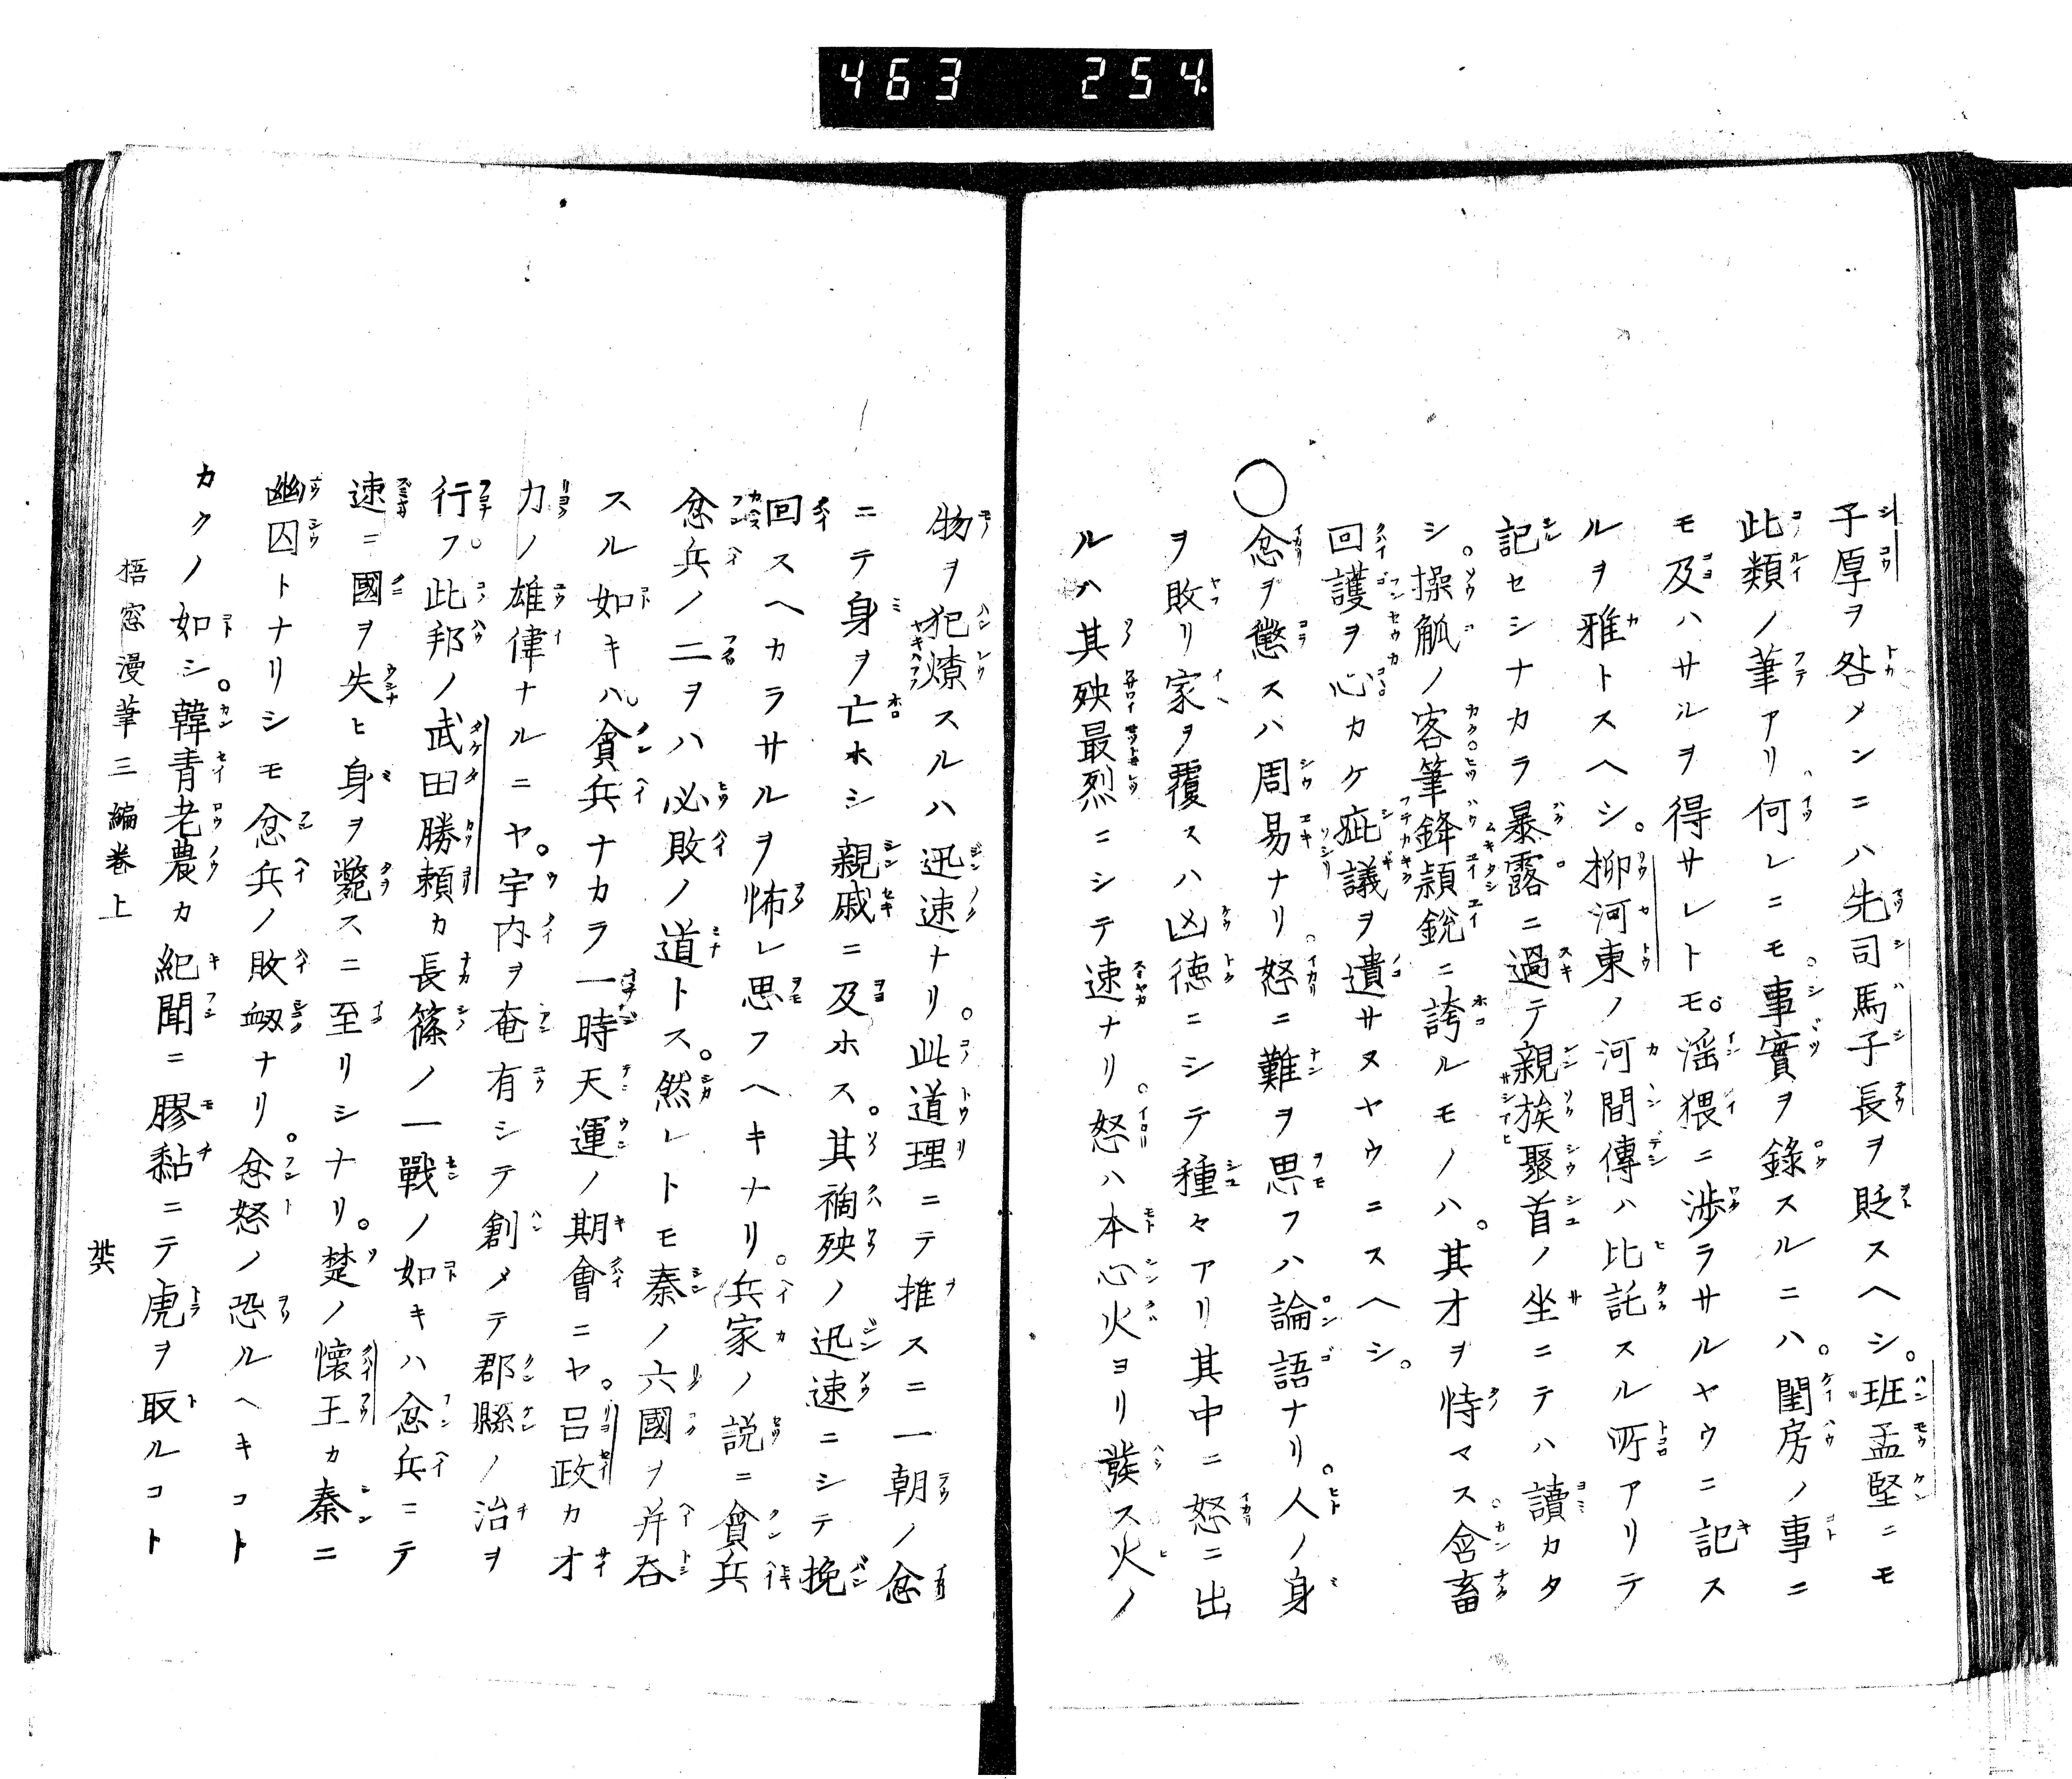 463 254.
子厚ヲ咎メンニハ先司馬子長ヲ貶スヘシ。班孟堅ニモ
此類ノ筆アリ何レニモ事實ヲ錄スルニハ。閨房ノ事ニ
モ及ハサルヲ得サレトモ。淫猥ニ渉ラサルヤウニ記ス
ルヲ雅トスヘシ。柳河東ノ河間傳ハ比託スル所アリテ
記セシナカラ暴露ニ過テ親族聚首ノ坐ニテハ讀カタ
シ。操觚ノ客筆鋒穎鋭ニ誇ルモノハ。其才ヲ恃マス含畜
回護ヲ心カケ疵議ヲ遺サヌヤウニスヘシ。
○忿ヲ懲スハ周易ナリ。怒ニ難ヲ思フハ論語ナリ。人ノ身
ヲ敗リ家ヲ覆スハ凶徳ニシテ種々アリ其中ニ怒ニ出
ルハ其殃最烈ニシテ速ナリ。怒ハ本心火ヨリ發ス火ノ
物ヲ犯燎スルハ迅速ナリ。此道理ニテ推スニ一朝ノ忿
ニテ身ヲ亡ホシ親戚ニ及ホス。其禍殃ノ迅速ニシテ挽
回スヘカラサルヲ怖レ思フヘキナリ。兵家ノ説ニ貪兵
忿兵ノ二ヲハ必敗ノ道トス。然レトモ秦ノ六國ヲ并呑
スル如キハ。貪兵ナカラ一時天運ノ期會ニヤ。呂政カ才
力ノ雄偉ナルニヤ。宇内ヲ奄有シテ創メテ郡縣ノ治ヲ
行フ。此邦ノ武田勝頼カ長篠ノ一戰ノ如キハ忿兵ニテ
速ニ國ヲ失ヒ身ヲ斃スニ至リシナリ。楚ノ懷王カ秦ニ
幽囚トナリシモ忿兵ノ敗衂ナリ。忿怒ノ恐ルヘキコト
カクノ如シ。韓青老農カ紀聞ニ膠黏ニテ虎ヲ取ルコト
梧窓漫筆三編巻上